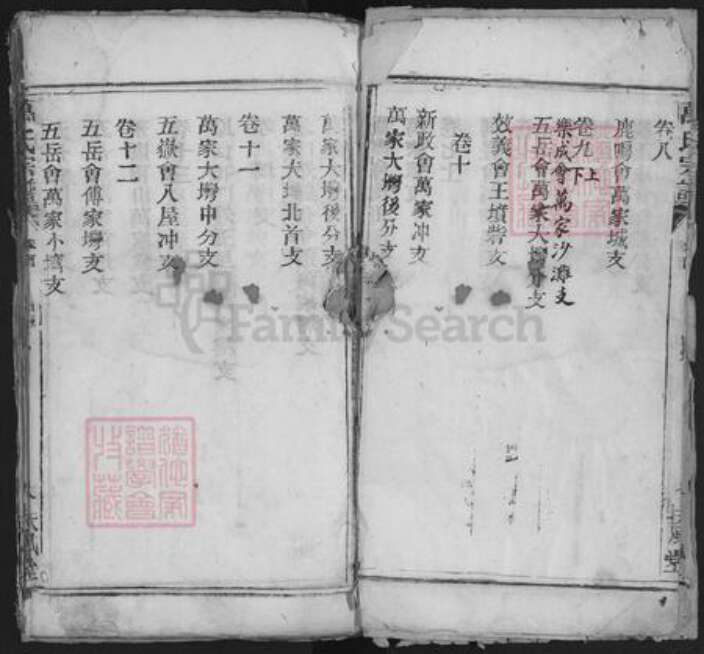 卷八
鹿鳴會萬家城支
卷九 上 下
樂成會萬家沙灘支
五岳會萬家大塆分支
效義會王墳砦支
卷十
新政會萬家冲支
萬家大塆後分支
萬家大塆後分支
萬家大塆北首支
卷十一
萬家大塆中分支
五嶽會八屋冲支
卷十二
五岳會傅家塆支
五岳會萬家小塆支
FamilySearch